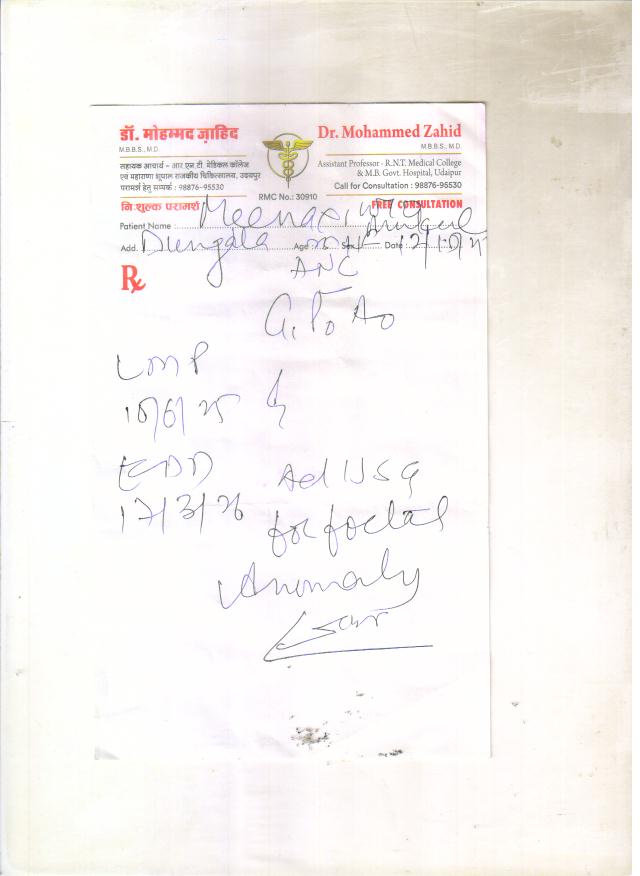 डॉ. मोहम्मद ज़ाहिद
M.B.B.S., M.D.
सहायक आचार्य - आर.एन.टी. मेडिकल कॉलेज
एवं महाराणा भूपाल राजकीय चिकित्सालय, उदयपुर
परामर्श हेतु सम्पर्क : 98876-95530
Dr. Mohammed Zahid
M.B.B.S., M.D.
Assistant Professor - R.N.T. Medical College
& M.B. Govt. Hospital, Udaipur
Call for Consultation : 98876-95530
RMC No.: 30910
नि:शुल्क परामर्श
FREE CONSULTATION
Patient Name : Meenaxi w/o
Add. Dungala Age Sex F Date : 12/10/25
Rx
ANC
G1 P0 A0
LMP
10/6/25
EDD
17/3/26
Ad USG
for foetal
Anomaly
Scan